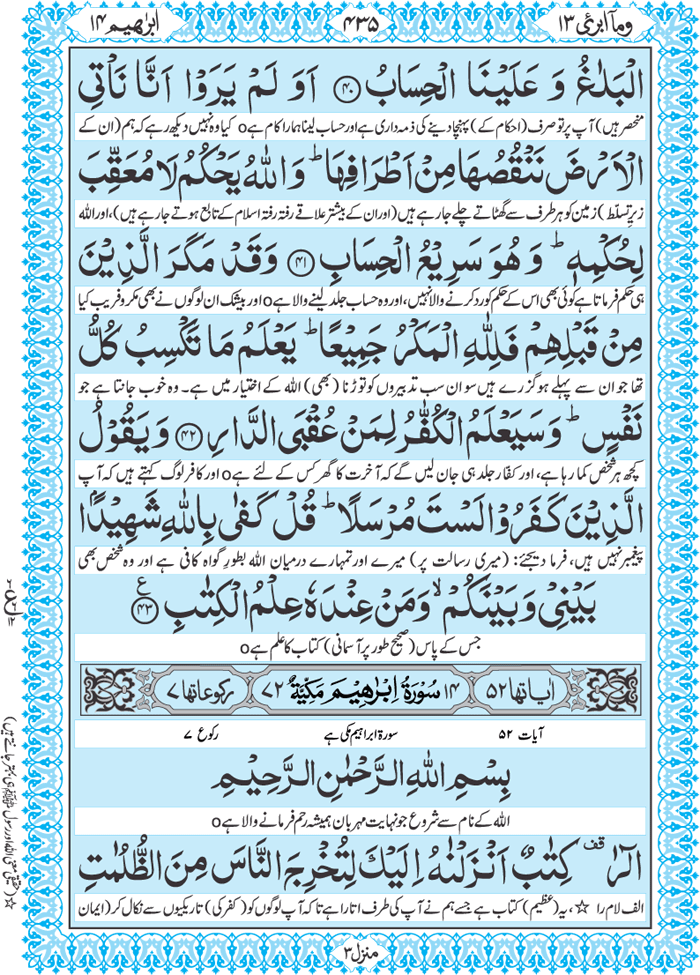 وما ابرئ ۱۳
۴۳۵
ابرٰهيم ۱۴
الْبَلٰغُ وَ عَلَيْنَا الْحِسَابُ ﴿۴۰﴾ اَوَ لَمْ يَرَوْا اَنَّا نَاْتِی
منحصر ہیں) آپ پر تو صرف (احکام کے) پہنچا دینے کی ذمہ داری ہے اور حساب لینا ہمارا کام ہے o کیا وہ نہیں دیکھ رہے کہ ہم (ان کے
الْاَرْضَ نَنْقُصُهَا مِنْ اَطْرَافِهَا ؕ وَ اللّٰهُ يَحْكُمُ لَا مُعَقِّبَ
زیرِ تسلط) زمین کو ہر طرف سے گھٹاتے چلے جا رہے ہیں (اور ان کے بیشتر علاقے رفتہ رفتہ اسلام کے تابع ہوتے جا رہے ہیں)، اور اللہ
لِحُكْمِهٖ ؕ وَ هُوَ سَرِيْعُ الْحِسَابِ ﴿۴۱﴾ وَ قَدْ مَكَرَ الَّذِيْنَ
ہی حکم فرماتا ہے کوئی بھی اس کے حکم کو رد کرنے والا نہیں، اور وہ حساب جلد لینے والا ہے o اور بیشک ان لوگوں نے بھی مکر و فریب کیا
مِنْ قَبْلِهِمْ فَلِلّٰهِ الْمَكْرُ جَمِيْعًا ؕ يَعْلَمُ مَا تَكْسِبُ كُلُّ
تھا جو ان سے پہلے ہو گزرے ہیں سو ان سب تدبیروں کو توڑنا (بھی) اللہ کے اختیار میں ہے۔ وہ خوب جانتا ہے جو
نَفْسٍ ؕ وَ سَيَعْلَمُ الْكُفّٰرُ لِمَنْ عُقْبَى الدَّارِ ﴿۴۲﴾ وَ يَقُوْلُ
کچھ ہر شخص کما رہا ہے، اور کفار جلد ہی جان لیں گے کہ آخرت کا گھر کس کے لئے ہے o اور کافر لوگ کہتے ہیں کہ آپ
الَّذِيْنَ كَفَرُوْا لَسْتَ مُرْسَلًا ؕ قُلْ كَفٰى بِاللّٰهِ شَهِيْدًۢا
پیغمبر نہیں ہیں، فرما دیجئے: (میری رسالت پر) میرے اور تمہارے درمیان اللہ بطورِ گواہ کافی ہے اور وہ شخص بھی
بَيْنِیْ وَ بَيْنَكُمْ ۙ وَ مَنْ عِنْدَهٗ عِلْمُ الْكِتٰبِ ﴿۴۳﴾ ع
جس کے پاس (صحیح طور پر آسمانی) کتاب کا علم ہے o
اٰیاتها ۵۲
۱۴ سُوْرَةُ اِبْرٰهِيْمَ مَكِّيَّةٌ ۷۲
رکوعاتها ۷
آیات ۵۲
سورۃ ابراہیم مکی ہے
رکوع ۷
بِسْمِ اللّٰهِ الرَّحْمٰنِ الرَّحِيْمِ
اللہ کے نام سے شروع جو نہایت مہربان ہمیشہ رحم فرمانے والا ہے o
الٓرٰ ۟قف كِتٰبٌ اَنْزَلْنٰهُ اِلَيْكَ لِتُخْرِجَ النَّاسَ مِنَ الظُّلُمٰتِ
الف لام را ☆، یہ (عظیم) کتاب ہے جسے ہم نے آپ کی طرف اتارا ہے تاکہ آپ لوگوں کو (کفر کی) تاریکیوں سے نکال کر (ایمان
☆ (حقیقی معنی اللہ اور رسول ﷺ ہی بہتر جانتے ہیں)
منزل ۳